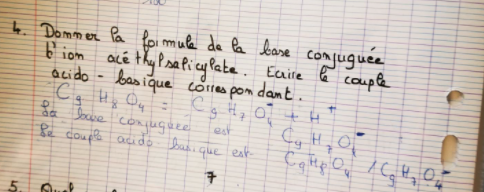 4. Donner la formule de la base conjuguée
l'ion acéthylsalicylate. Ecrire le couple
acido-basique correspondant.
C₉ H₈ O₄ = C₉ H₇ O₄⁻ + H⁺
La base conjuguée est C₉ H₇ O₄⁻
Le couple acido-basique est C₉H₈O₄ / C₉H₇O₄⁻
7
5.